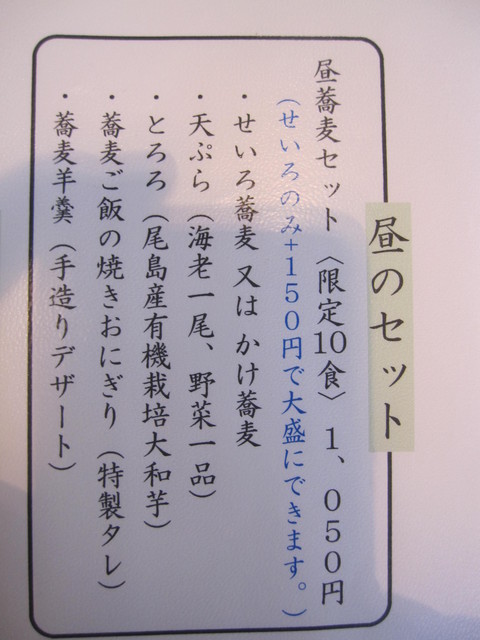 昼のセット
昼蕎麦セット〈限定10食〉 1、050円
(せいろのみ+150円で大盛にできます。)
・せいろ蕎麦 又は かけ蕎麦
・天ぷら(海老一尾、野菜一品)
・とろろ(尾島産有機栽培大和芋)
・蕎麦ご飯の焼きおにぎり(特製タレ)
・蕎麦羊羹(手造りデザート)